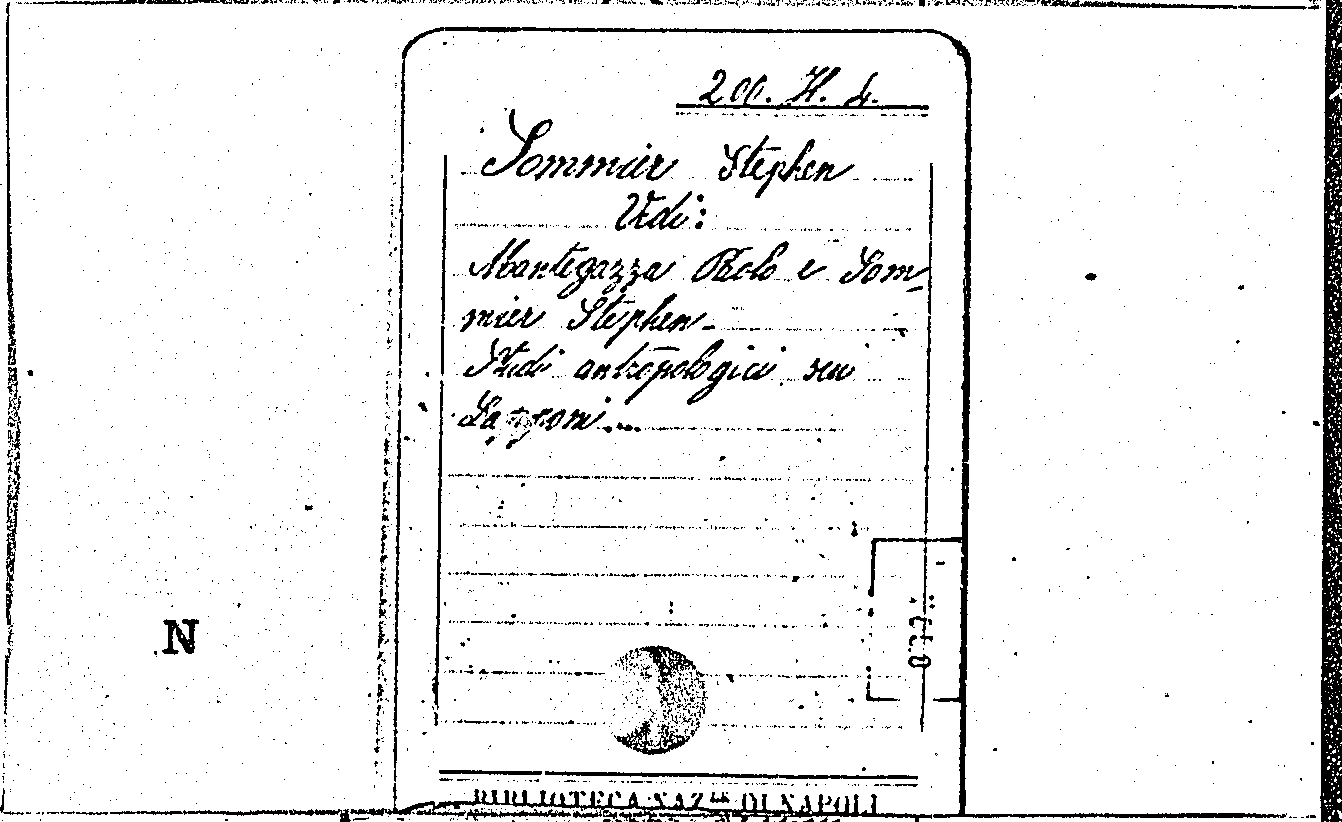 200. H. 4.
Sommier Stephen
Vedi:
Mantegazza Paolo e Som-
mier Stephen-
Studi antropologici sui
Lapponi...
N
BIBLIOTECA NAZ.LE DI NAPOLI